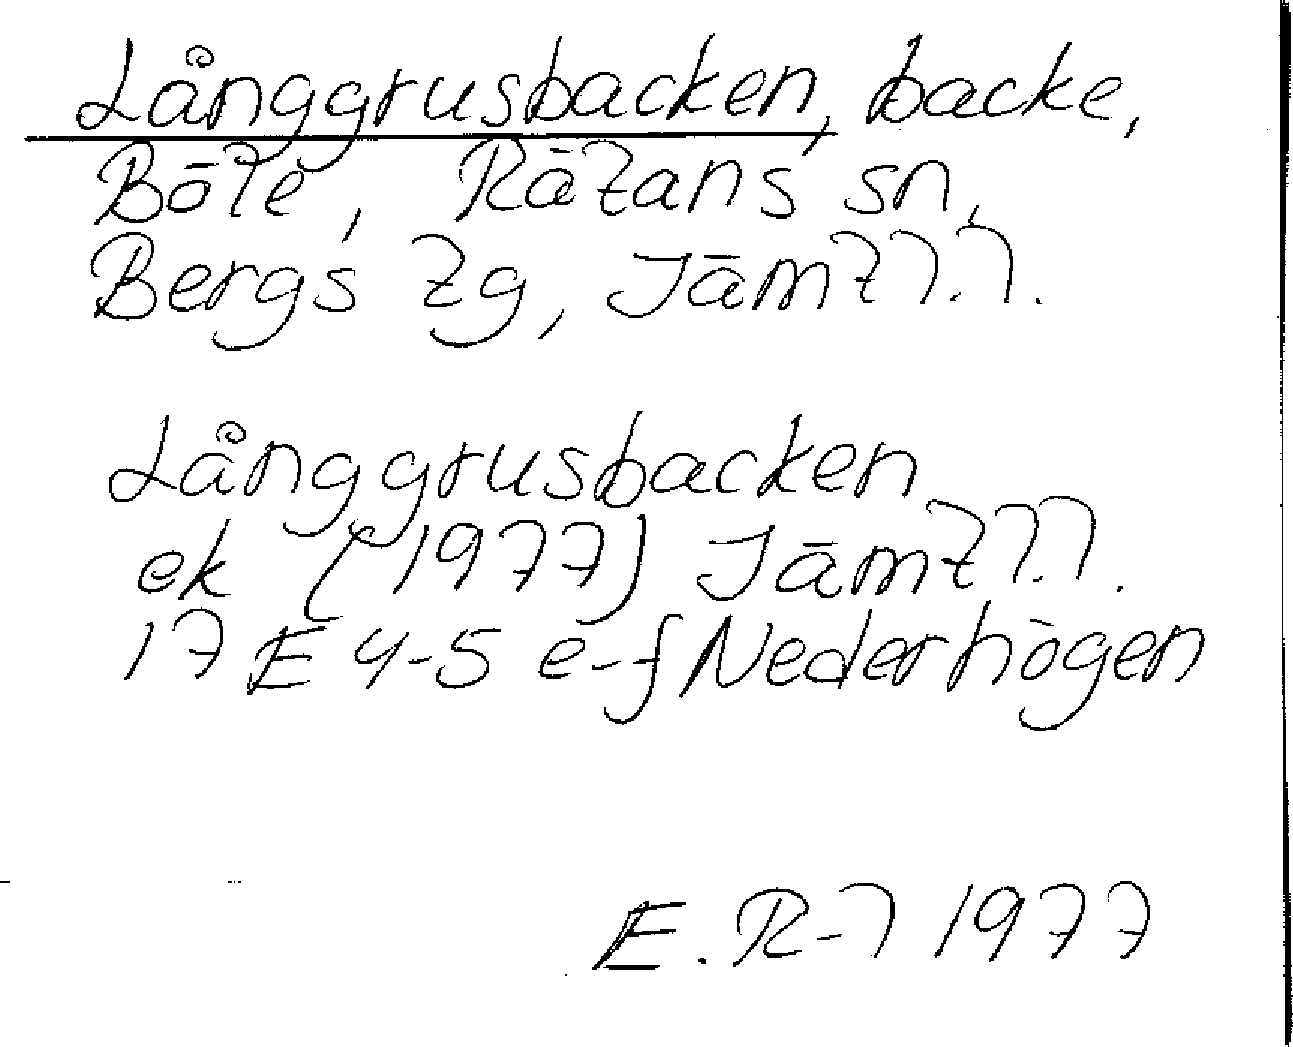 Långgrusbacken, backe,
Böle, Rätans sn,
Bergs tg, Jämtl.l.
Långgrusbacken
ek (1977) Jämtl.l.
17 E 4-5 e-f Nederhögen
E. R-l 1977